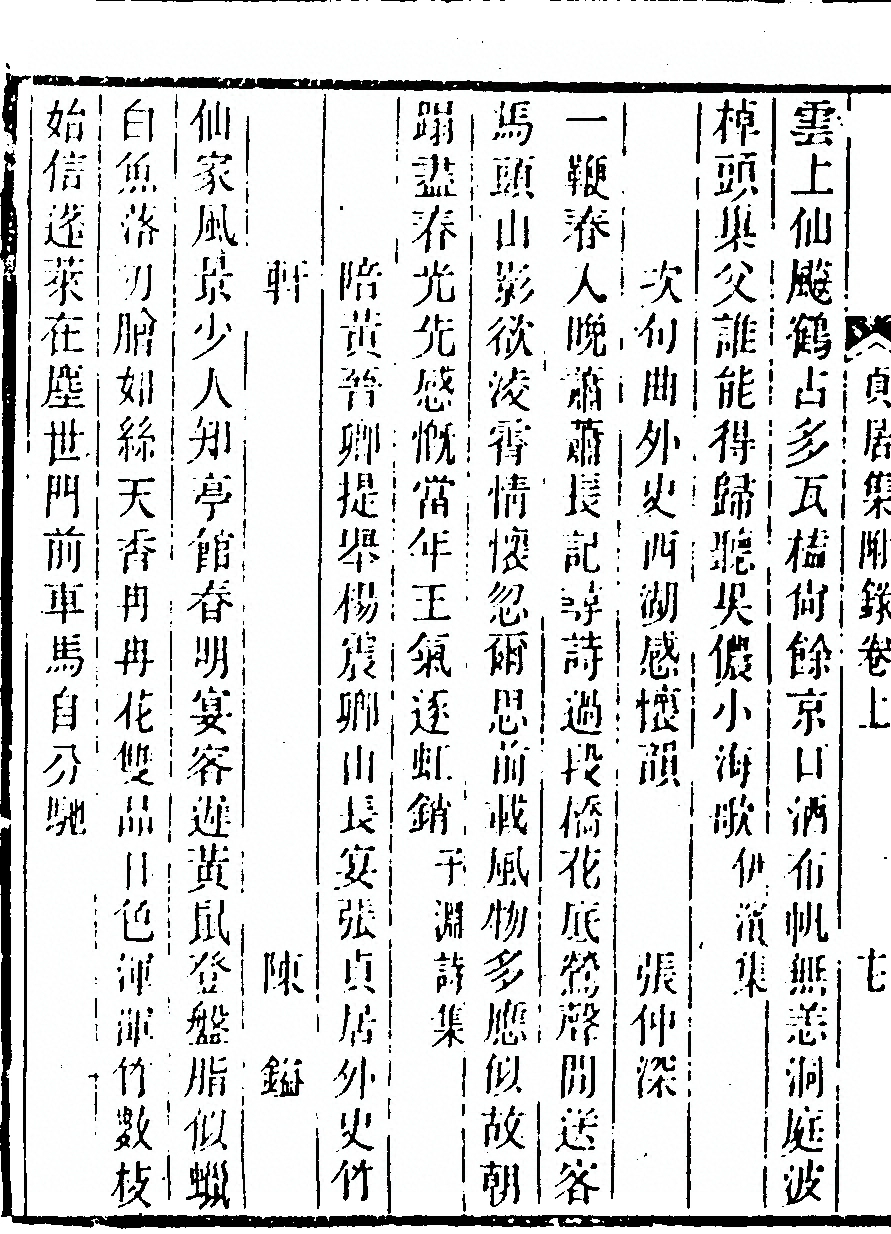 貞居集附錄卷上 七
雲上仙颷鶴占多瓦榼尙餘京口酒布帆無恙洞庭波
棹頭巢父誰能得歸聽吳儂小海歌伊濱集
次句曲外史西湖感懷韻 張仲深
一鞭春入晚蕭蕭長記尋詩過段僑花底鶯聲閒送客
馬頭山影欲淩霄情懷忽爾思前載風物多應似故朝
蹋盡春光先感慨當年王氣逐虹銷子淵詩集
陪黃晉卿提舉楊震卿山長宴張貞居外史竹
軒 陳鎰
仙家風景少人知亭館春明宴客遲黃鼠登盤脂似蠟
白魚落刃膾如絲天香冉冉花雙品日色渾渾竹數枝
始信蓬萊在塵世門前車馬自分馳